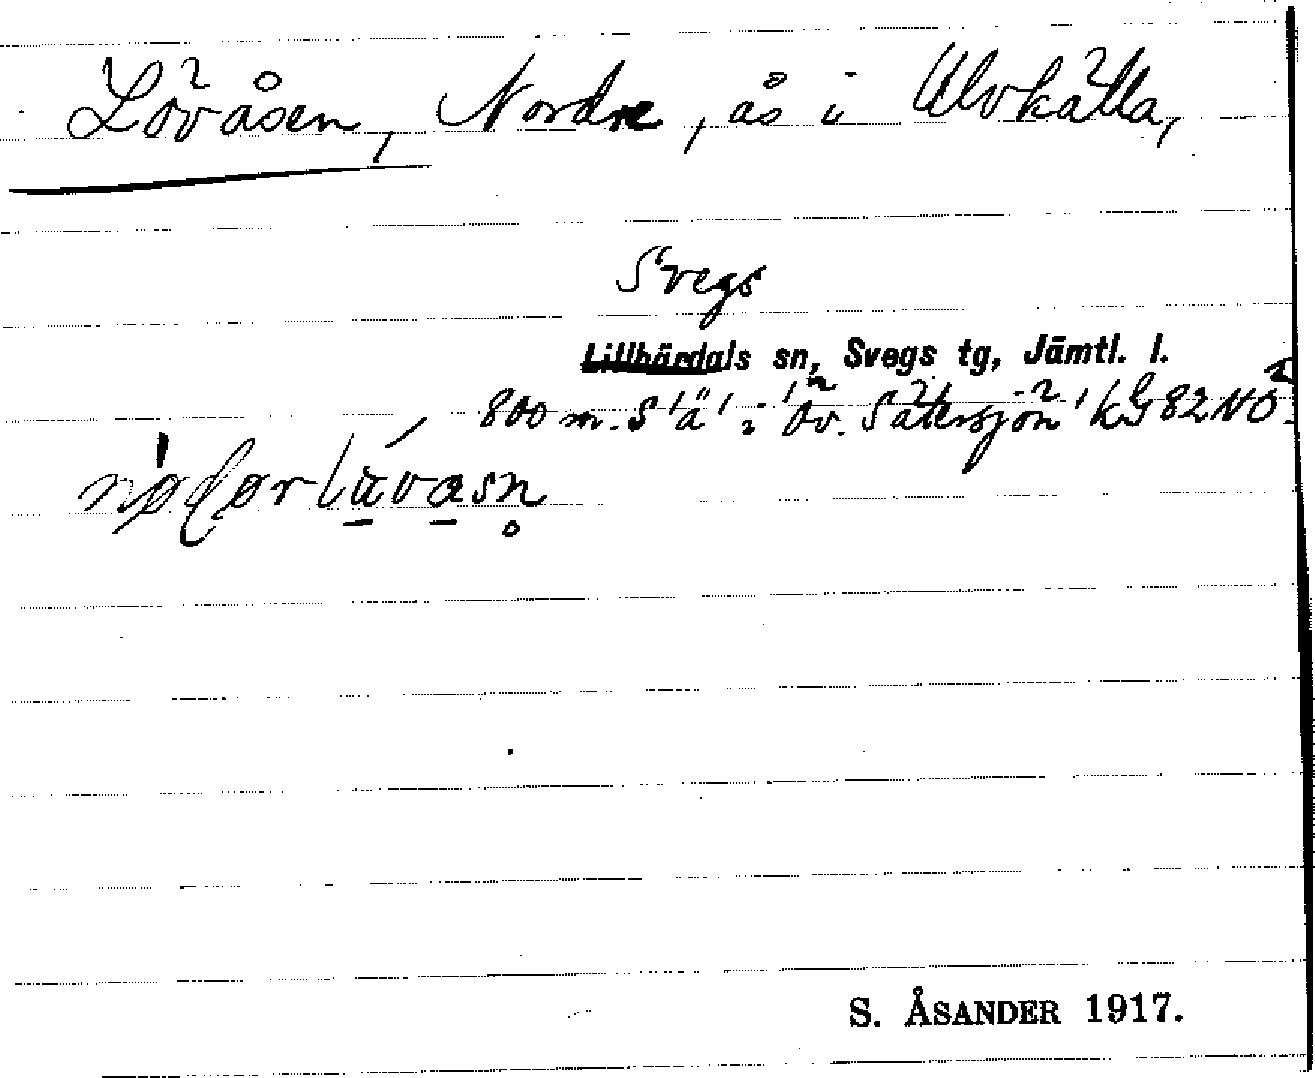 Lövåsen, Nordre, ås i Ulvkälla,
Svegs
Lillhärdals sn, Svegs tg, Jämtl. l.
800 m. S 'ä' i 'Öv. Sätersjön' kG 82 NÖ
S. ÅSANDER 1917.